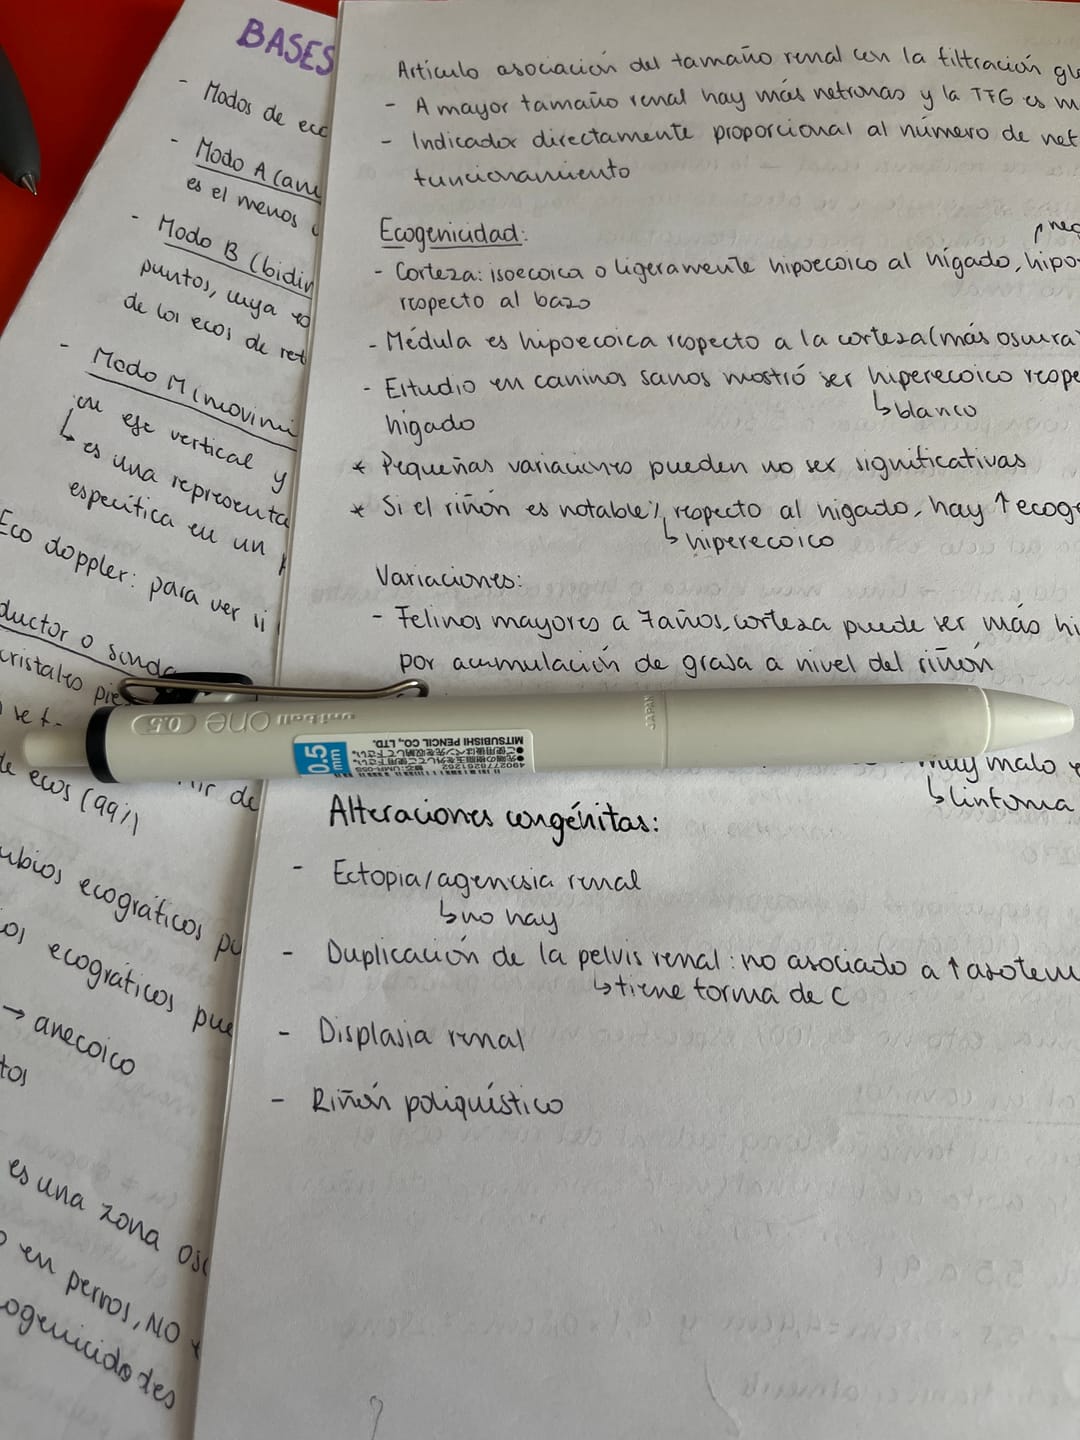 BASES
- Modos de eco
- Modo A (am
es el menos
- Modo B (bidim
puntos, cuya
de los ecos de ret
- Modo M (movimi
en eje vertical y
↳ es una representa
específica en un
Eco doppler: para ver si
ductor o sonda
cristales pie
de ecos (99%)
mbios ecográficos pu
os ecográficos pue
→ anecoico
tos
es una zona osc
en perros, NO
ogenicidades
Artículo asociación del tamaño renal con la filtración glo
- A mayor tamaño renal hay más nefronas y la TFG es m
- Indicador directamente proporcional al número de nef
funcionamiento
Ecogenicidad:
- Corteza: isoecoica o ligeramente hipoecoico al hígado, hipo-
respecto al bazo
- Médula es hipoecoica respecto a la corteza (más oscura)
- Estudio en caninos sanos mostró ser hiperecoico respe
↳ blanco
hígado
* Pequeñas variaciones pueden no ser significativas
* Si el riñón es notable% respecto al hígado, hay ↑ ecoge
↳ hiperecoico
Variaciones:
- Felinos mayores a 7 años, corteza puede ser más hi
por acumulación de grasa a nivel del riñón
uni-ball one 0.5
JAPAN
0.5 mm
MITSUBISHI PENCIL CO., LTD.
muy malo
↳ linfoma
Alteraciones congénitas:
- Ectopia/agenesia renal
↳ no hay
- Duplicación de la pelvis renal: no asociado a ↑ azotem
↳ tiene forma de C
- Displasia renal
- Riñón poliquístico